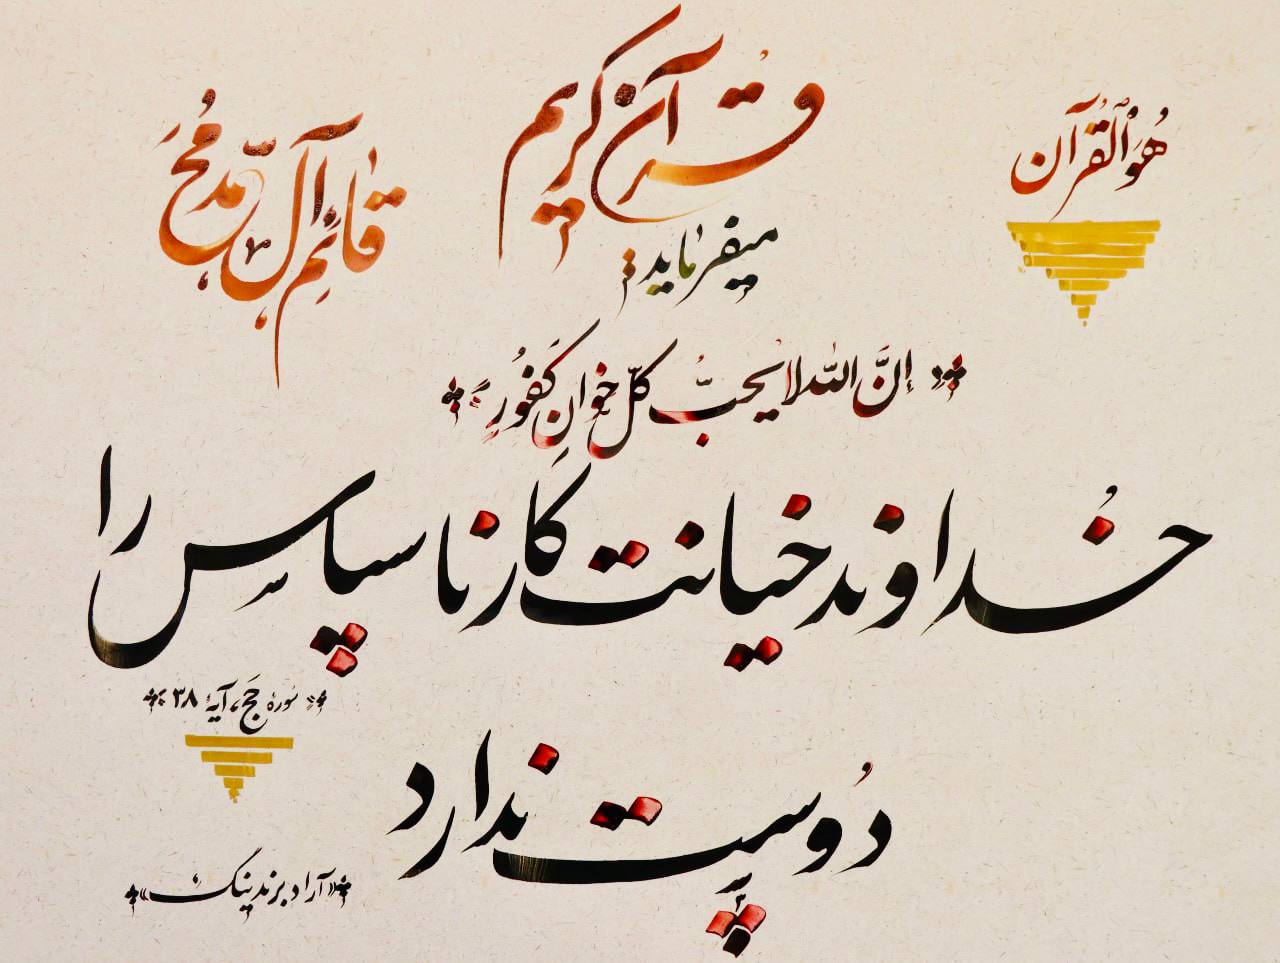 هُوَ الْقُرآن
قُرآن کریم
میفرماید
قائِم آل مُحَمّد
إنَّ اللّٰه لا یحبُّ کلّ خوانٍ کَفُورٍ
خُداوند خیانت کار ناسپاسِ را
دُوست ندارد
سوره حَج، آیهٔ ٣٨
«آراد برندینگ»